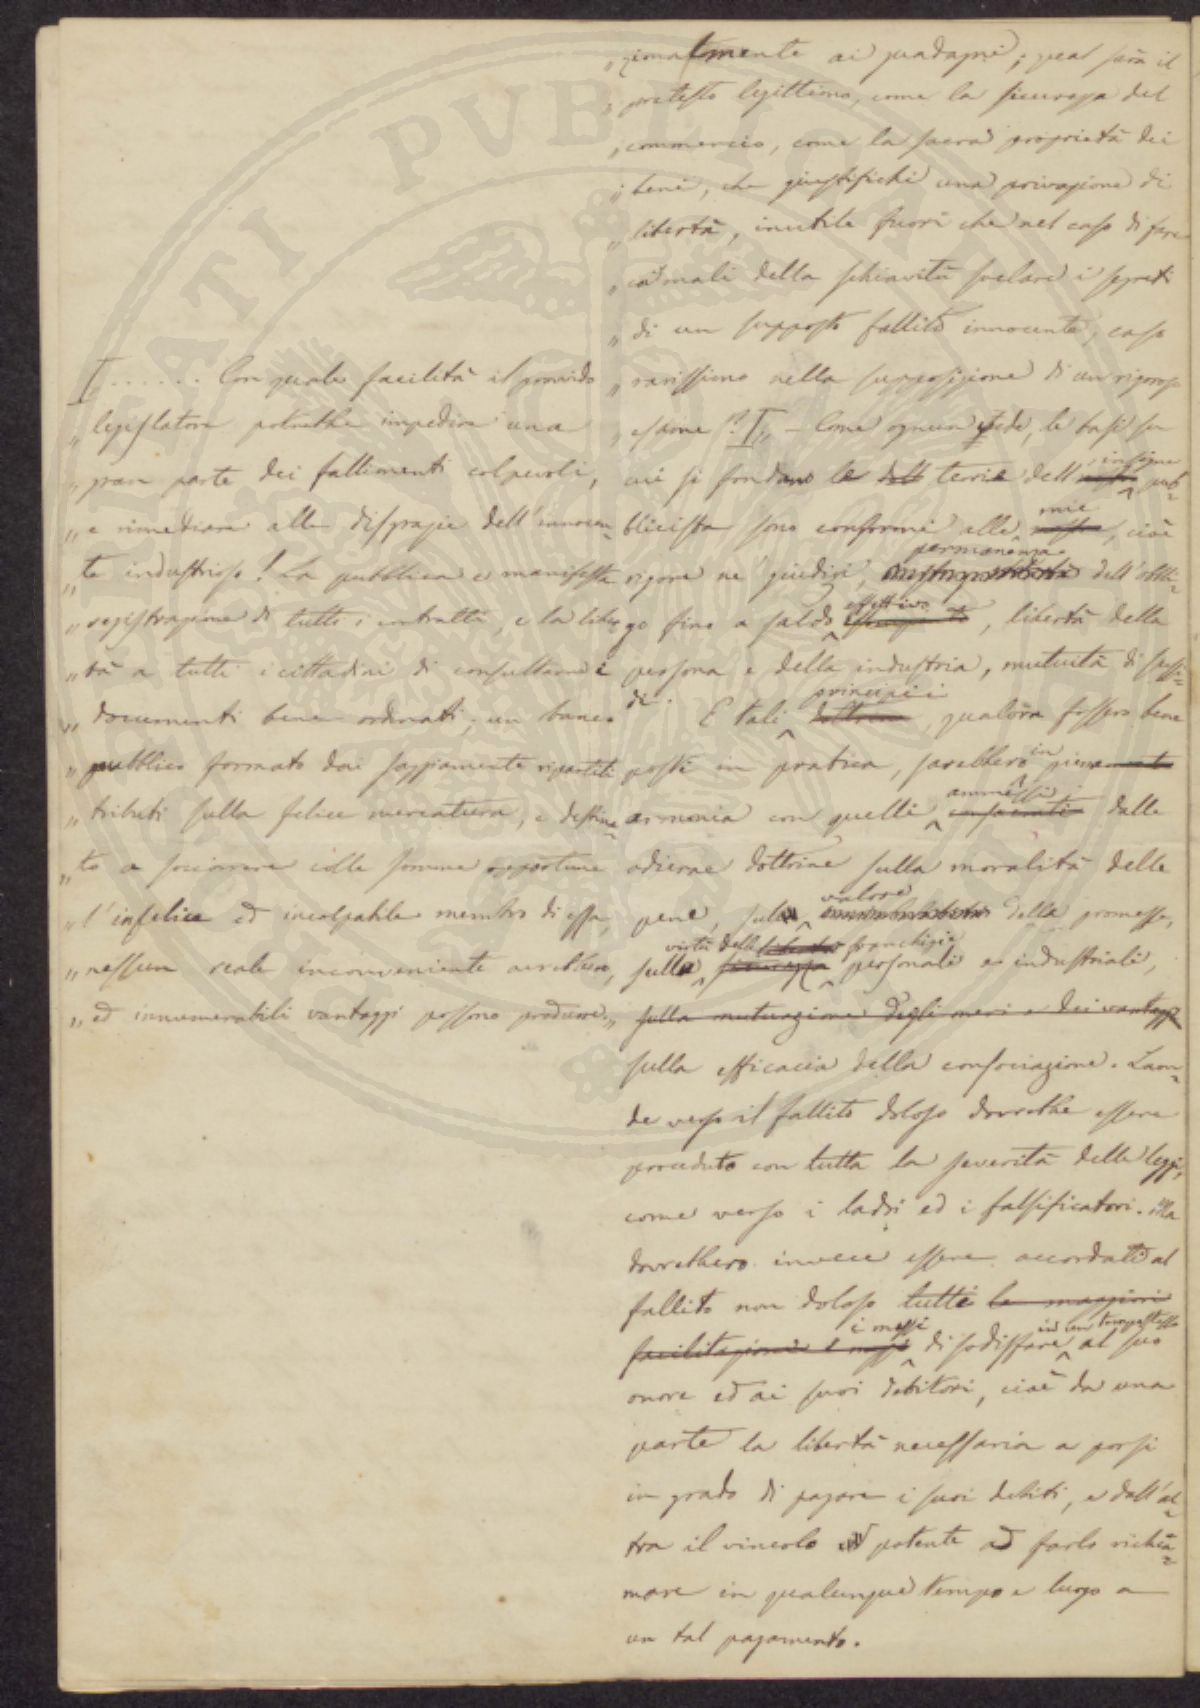 „ zionatmente ai guadagni; qual sarà il
„ pretesto legittimo, come la sicurezza del
„ commercio, come la sacra proprietà dei
„ beni, che giustifichi una privazione di
„ libertà, inutile fuori che nel caso di fare
„ co' mali della schiavitù svelare i segreti
„ di un supposto fallito innocente, caso
„ rarissimo nella supposizione di un rigoroso
„ esame?I„ — Come ognun vede, le basi su
cui si fondano le teorie dell' insigne pub-
blicista sono conformi alle mie, cioè
rigore ne' giudizi, permanenza dell'obbli-
go fino a saldo effettivo, libertà della
persona e della industria, mutuità di sussi-
di. E tali principii, qualora fossero bene
posti in pratica, sarebbero in piena
armonia con quelli ammessi dalle
odierne dottrine sulla moralità delle
pene, sul valore della promessa,
sulla virtù delle franchigie personali e industriali,
sulla mutuazione degli oneri e dei vantaggi
sulla efficacia della consociazione. Laon-
de verso il fallito doloso dovrebbe essere
proceduto con tutta la severità delle leggi,
come verso i ladri ed i falsificatori. Ma
dovrebbero invece essere accordati al
fallito non doloso tutti le maggiori
facilitazioni e mezzi i mezzi di sodisfare in un tempo stesso al suo
onore ed ai suoi debitori, cioè da una
parte la libertà necessaria a porsi
in grado di pagare i suoi debiti, e dall'al-
tra il vincolo potente ad farlo richia-
mare in qualunque tempo e luogo a
un tal pagamento.
I...... Con quale facilità il provvido
„ legislatore potrebbe impedire una
„ gran parte dei fallimenti colpevoli,
„ e rimediare alle disgrazie dell'innocen-
„ te industrioso! La pubblica e manifesta
„ registrazione di tutti i contratti, e la liber
„ tà a tutti i cittadini di consultarne i
„ documenti bene ordinati, un banco
„ pubblico formato dai saggiamente ripartiti
„ tributi sulla felice mercatura, e destina-
„ to a soccorrere colle somme opportune
„ l'infelice ed incolpabile membro di essa,
„ nessun reale inconveniente avrebbero,
„ ed innumerabili vantaggi possono produrre„